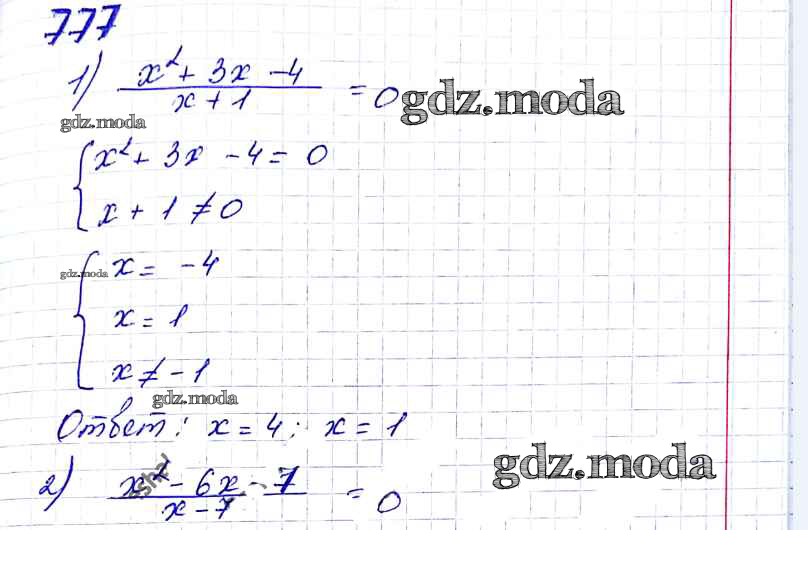 777
1) x² + 3x - 4 / x + 1 = 0 gdz.moda
gdz.moda
{ x² + 3x - 4 = 0
x + 1 ≠ 0
gdz.moda { x = -4
x = 1
x ≠ -1
gdz.moda
Ответ: x = 4; x = 1
gdz.moda
2) x² - 6x - 7 / x - 7 = 0